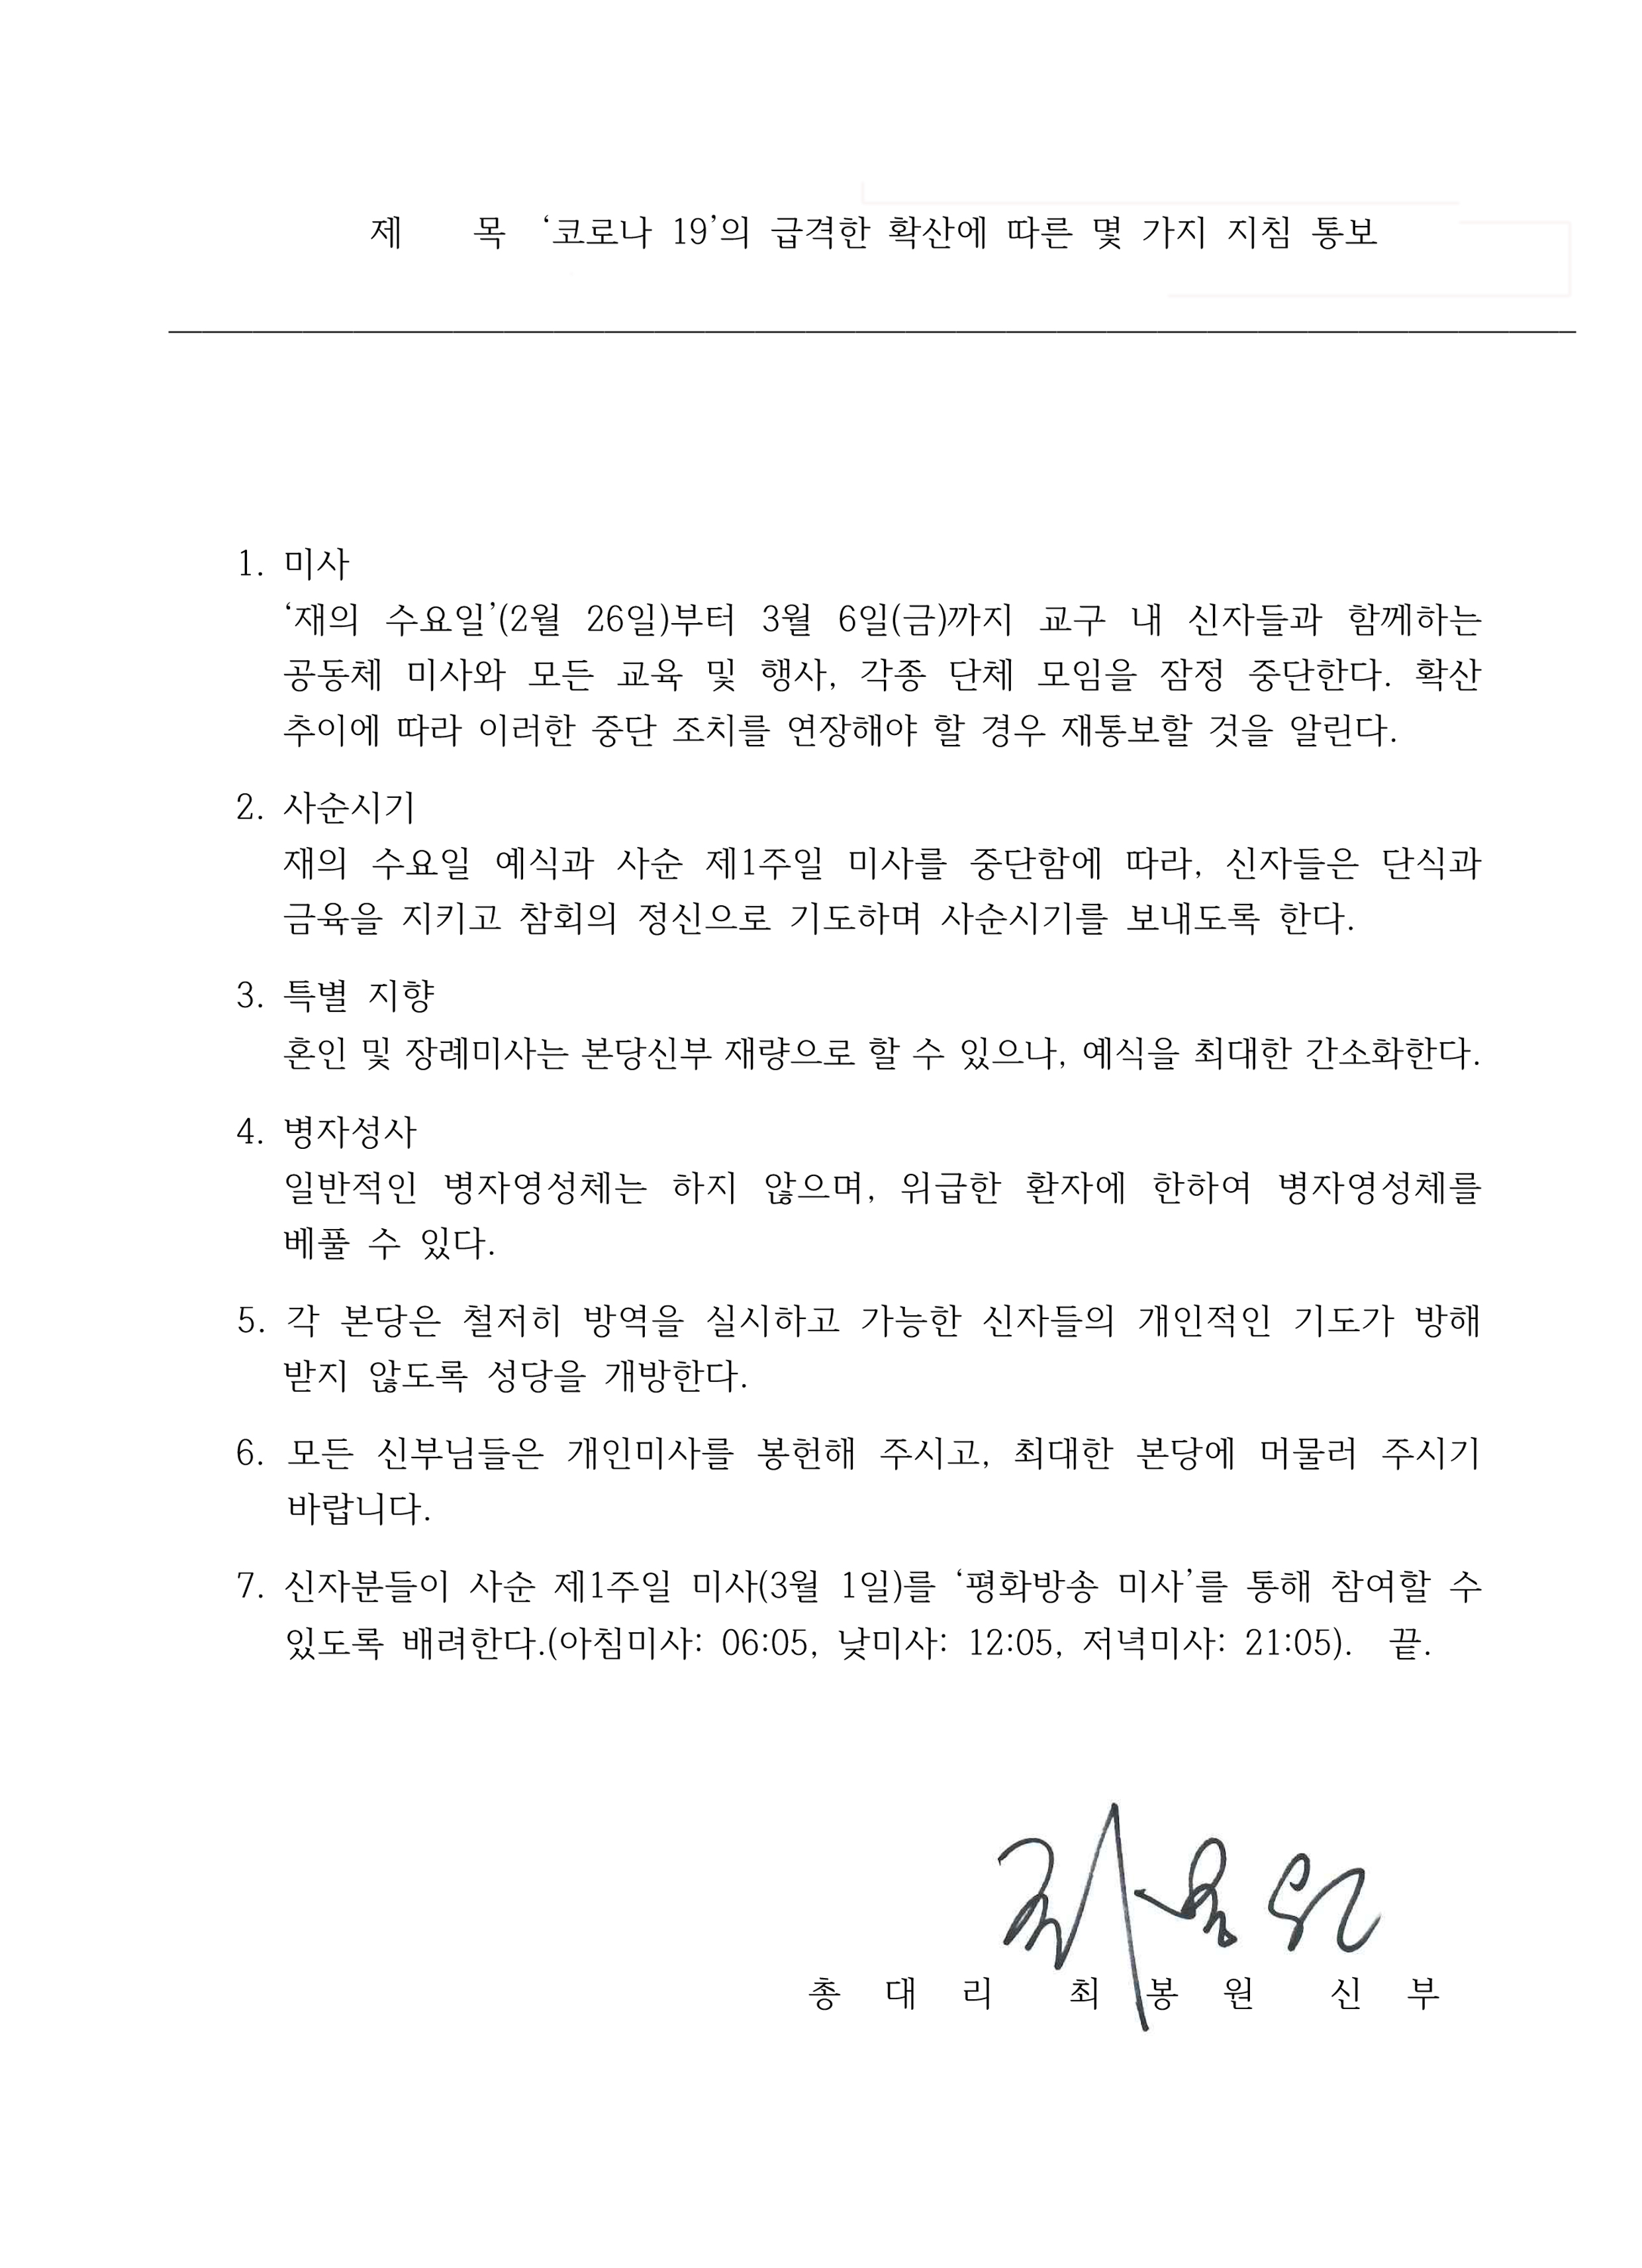 제 목 ‘코로나 19’의 급격한 확산에 따른 몇 가지 지침 통보
1. 미사
‘재의 수요일’(2월 26일)부터 3월 6일(금)까지 교구 내 신자들과 함께하는
공동체 미사와 모든 교육 및 행사, 각종 단체 모임을 잠정 중단한다. 확산
추이에 따라 이러한 중단 조치를 연장해야 할 경우 재통보할 것을 알린다.
2. 사순시기
재의 수요일 예식과 사순 제1주일 미사를 중단함에 따라, 신자들은 단식과
금육을 지키고 참회의 정신으로 기도하며 사순시기를 보내도록 한다.
3. 특별 지향
혼인 및 장례미사는 본당신부 재량으로 할 수 있으나, 예식을 최대한 간소화한다.
4. 병자성사
일반적인 병자영성체는 하지 않으며, 위급한 환자에 한하여 병자영성체를
베풀 수 있다.
5. 각 본당은 철저히 방역을 실시하고 가능한 신자들의 개인적인 기도가 방해
받지 않도록 성당을 개방한다.
6. 모든 신부님들은 개인미사를 봉헌해 주시고, 최대한 본당에 머물러 주시기
바랍니다.
7. 신자분들이 사순 제1주일 미사(3월 1일)를 ‘평화방송 미사’를 통해 참여할 수
있도록 배려한다.(아침미사: 06:05, 낮미사: 12:05, 저녁미사: 21:05). 끝.
최봉원
총 대 리 최 봉 원 신 부